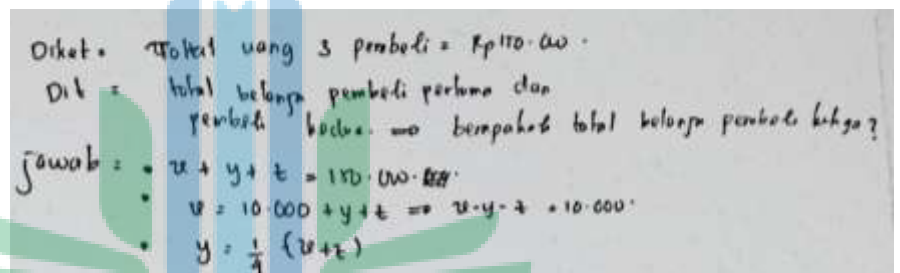 Diket. Total uang 3 pembeli = Rp 150.000.
Dit = total belanja pembeli pertama dan
pembeli kedua. => berapakah total belanja pembeli ketiga?
jawab = • x + y + z = 150.000.
• x = 10.000 + y + z => x - y - z = 10.000.
• y = 1/4 (x+z)